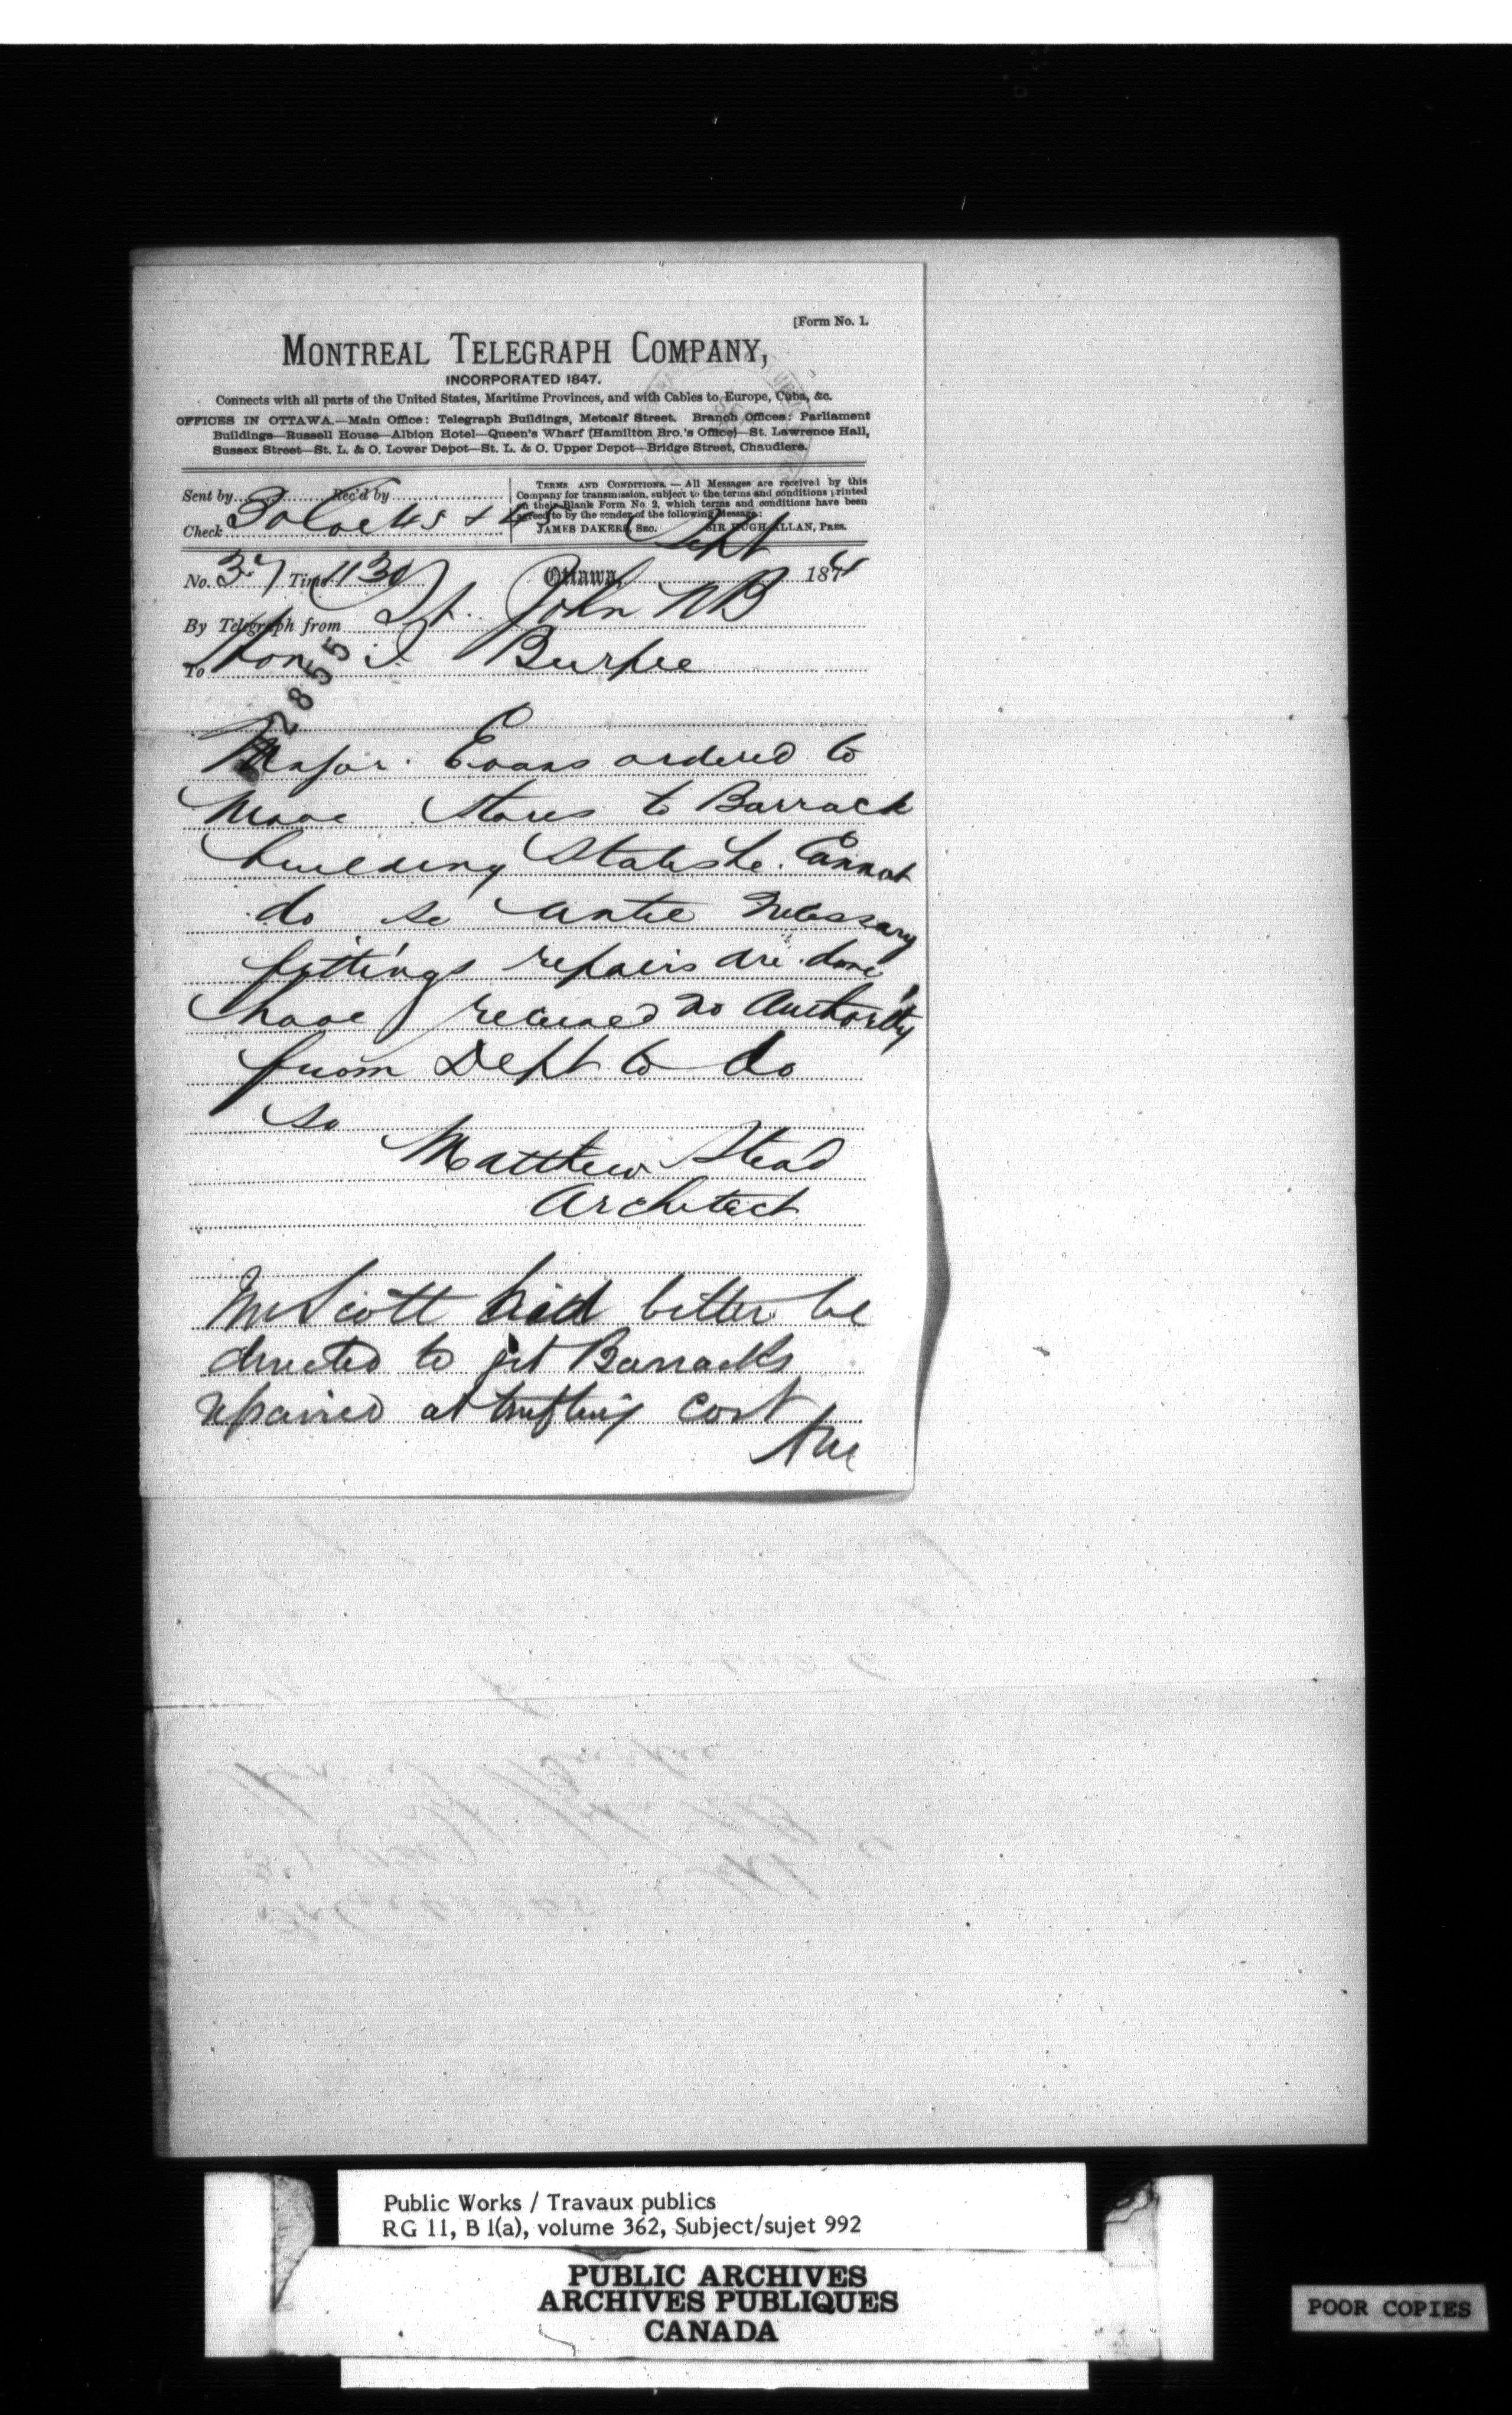 [Form No. 1.
MONTREAL TELEGRAPH COMPANY,
INCORPORATED 1847.
Connects with all parts of the United States, Maritime Provinces, and with Cables to Europe, Cuba, &c.
OFFICES IN OTTAWA.—Main Office: Telegraph Buildings, Metcalf Street. Branch Offices: Parliament
Buildings—Russell House—Albion Hotel—Queen's Wharf (Hamilton Bro.'s Office)—St. Lawrence Hall,
Sussex Street—St. L. & O. Lower Depot—St. L. & O. Upper Depot—Bridge Street, Chaudiere.
Sent by Rec'd by
Check 30
TERMS AND CONDITIONS.—All Messages are received by this
Company for transmission, subject to the terms and conditions printed
on their Blank Form No. 2, which terms and conditions have been
agreed to by the sender of the following Message:
JAMES DAKERS, SEC. SIR HUGH ALLAN, PRES.
Sept
No. 37 Time 1130 Ottawa, 1874
By Telegraph from St. John NB
To Hon I Burpee
2855
Major Evans ordered to
Move Stores to Barrack
building States he Cannot
do so until necessary
fittings repairs are done
have received no Authority
from Dept to do
so
Matthew Stead
Architect
Mr Scott had better be
directed to get Barracks
repaired at trifling cost
Public Works / Travaux publics
RG 11, B 1(a), volume 362, Subject/sujet 992
PUBLIC ARCHIVES
ARCHIVES PUBLIQUES
CANADA
POOR COPIES